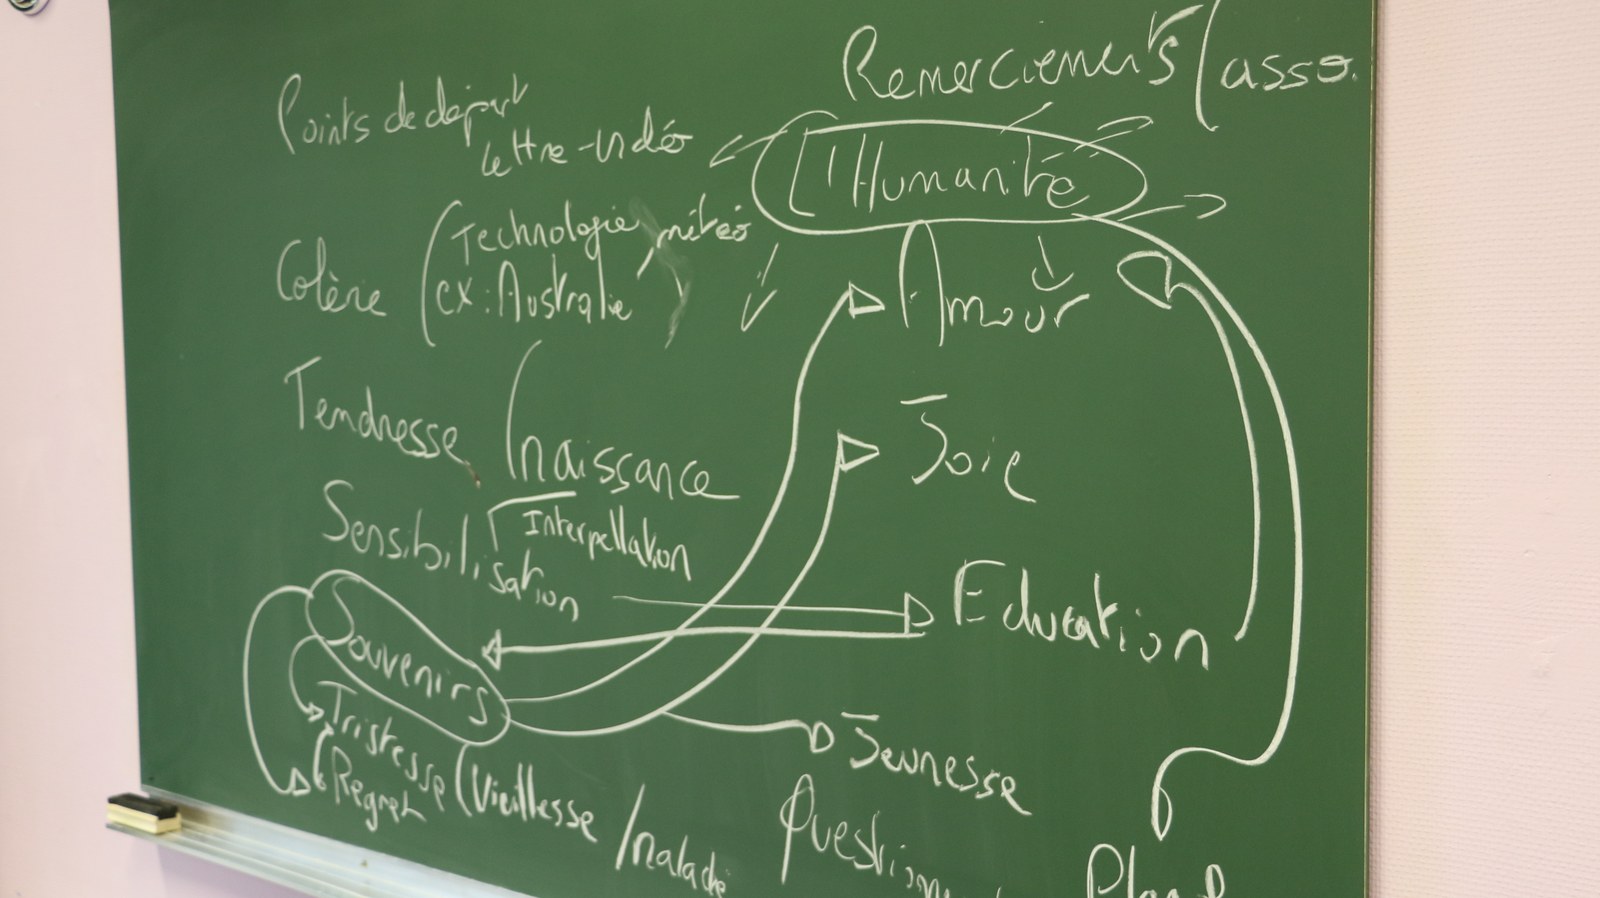 Remerciements (asso.
Points de départ
lettre-vidéo
L'Humanité
Colère (Technologie, météo
ex : Australie)
Amour
Tendresse (naissance
Joie
Sensibilisation
Interpellation
Education
Souvenirs
Tristesse (Vieillesse / maladie
Regret
Jeunesse